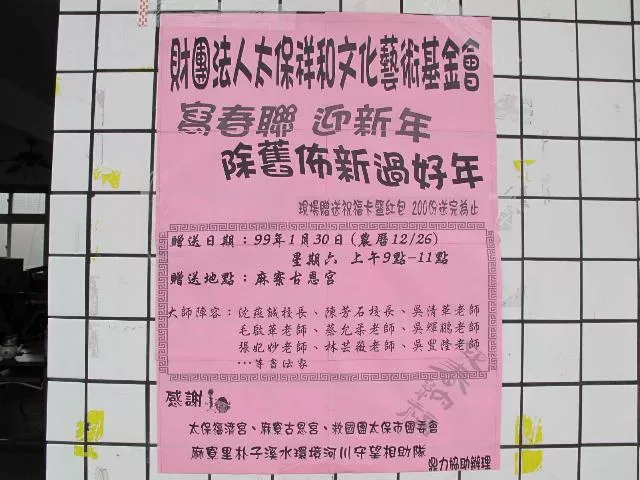 財團法人太保祥和文化藝術基金會
寫春聯 迎新年
除舊佈新過好年
現場贈送祝福卡暨紅包 200份送完為止
贈送日期：99年1月30日(農曆12/26)
星期六 上午9點-11點
贈送地點：麻寮古恩宮
大師陣容：沈 校長、陳芳石校長、吳清華老師
毛啟華老師、蔡允棻老師、吳耀鵬老師
張妃妙老師、林芸薇老師、吳豐隆老師
…等書法家
感謝
太保福濟宮、麻寮古恩宮、救國團太保市團委會
麻寮里朴子溪水環境河川守望相助隊 鼎力協助辦理